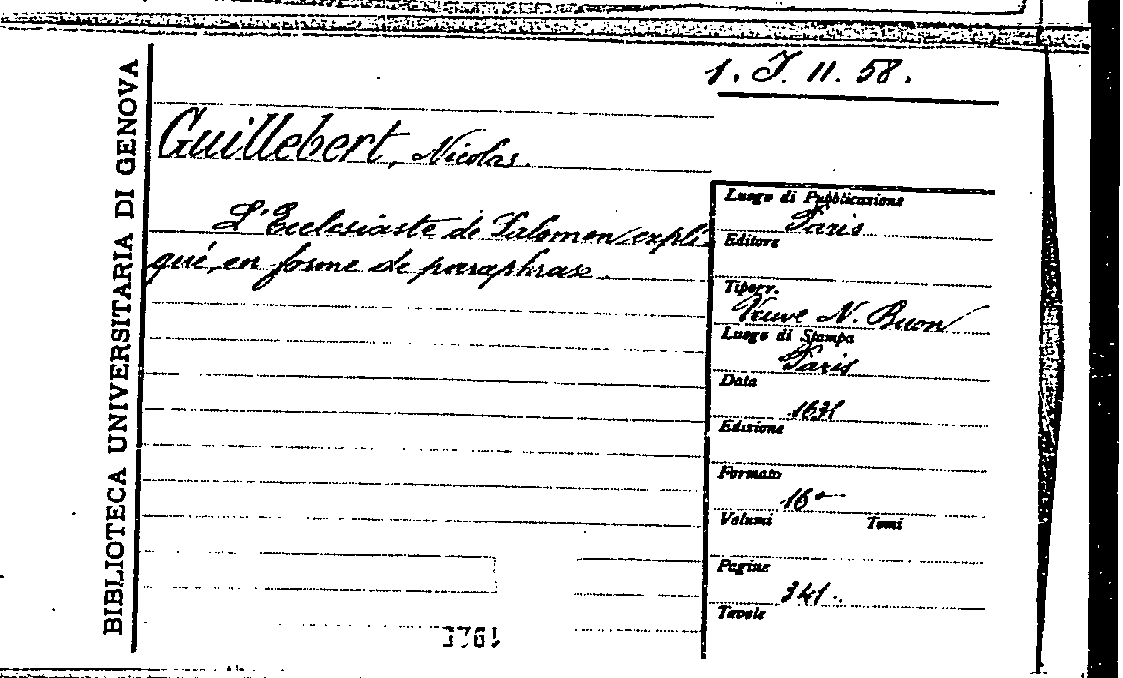 BIBLIOTECA UNIVERSITARIA DI GENOVA
1. J. 11. 58.
Guillebert, Nicolas.
L'Ecclesiaste de Salomon expli-
qué, en forme de paraphrase.
Luogo di Pubblicazione
Paris
Editore
Tipogr.
Veuve N. Buon
Luogo di Stampa
Paris
Data
1631
Edizione
Formato
16°
Volumi Tomi
Pagine
341.
Tavole